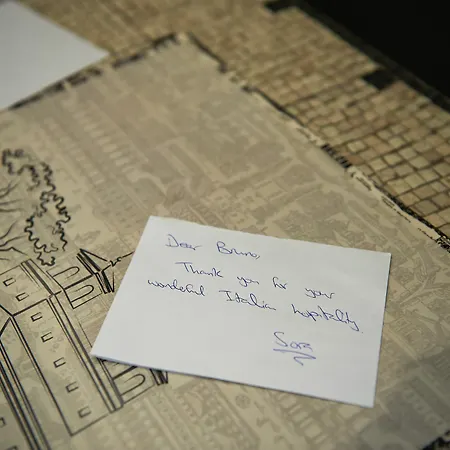 Dear Bruno,
Thank you for your
wonderful Italian hospitality.
Sara